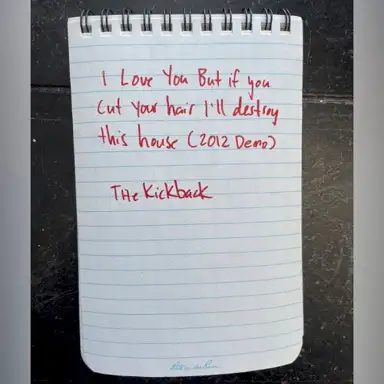 I Love You But if you
Cut your hair I'll destroy
this house (2012 Demo)
THe Kickback